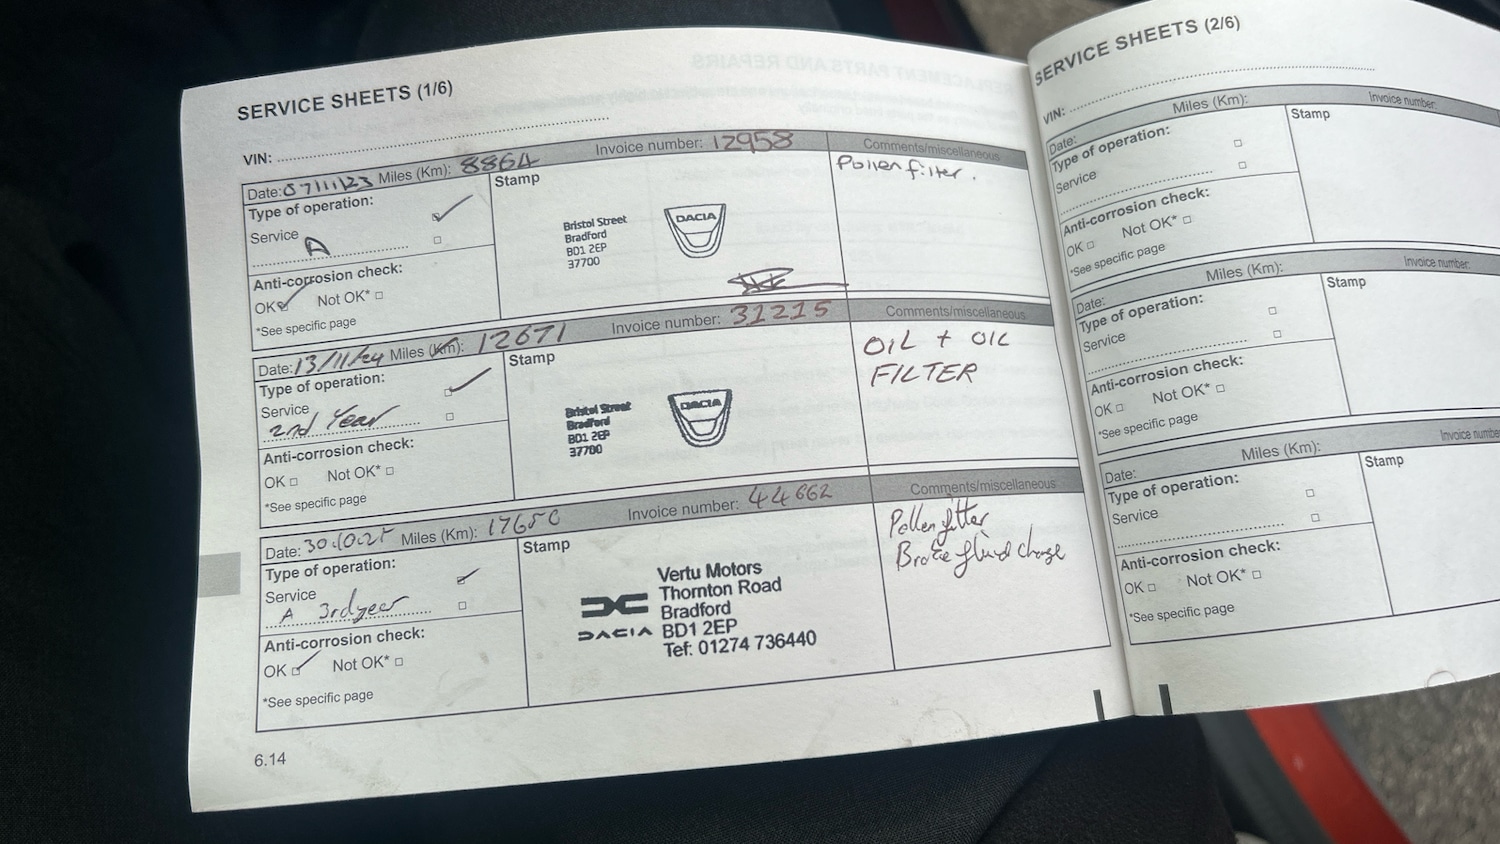 SERVICE SHEETS (1/6)
VIN:
Date: 07/11/23 Miles (Km): 8864 Invoice number: 12958 Comments/miscellaneous
Type of operation:
Service A
Anti-corrosion check:
OK Not OK*
*See specific page
Stamp
Bristol Street
Bradford
BD1 2EP
37700
DACIA
Pollen filter.
Date: 13/11/24 Miles (Km): 12671 Invoice number: 31215 Comments/miscellaneous
Type of operation:
Service
2nd Year
Anti-corrosion check:
OK Not OK*
*See specific page
Stamp
Bristol Street
Bradford
BD1 2EP
37700
DACIA
OIL + OIL
FILTER
Date: 30.10.25 Miles (Km): 17650 Invoice number: 44662 Comments/miscellaneous
Type of operation:
Service
A 3rd year
Anti-corrosion check:
OK Not OK*
*See specific page
Stamp
DACIA
Vertu Motors
Thornton Road
Bradford
BD1 2EP
Tel: 01274 736440
Pollen filter
Brake fluid change
6.14
SERVICE SHEETS (2/6)
VIN:
Date: Miles (Km): Invoice number:
Type of operation:
Service
Anti-corrosion check:
OK Not OK*
*See specific page
Stamp
Date: Miles (Km): Invoice number:
Type of operation:
Service
Anti-corrosion check:
OK Not OK*
*See specific page
Stamp
Date: Miles (Km): Invoice number
Type of operation:
Service
Anti-corrosion check:
OK Not OK*
*See specific page
Stamp